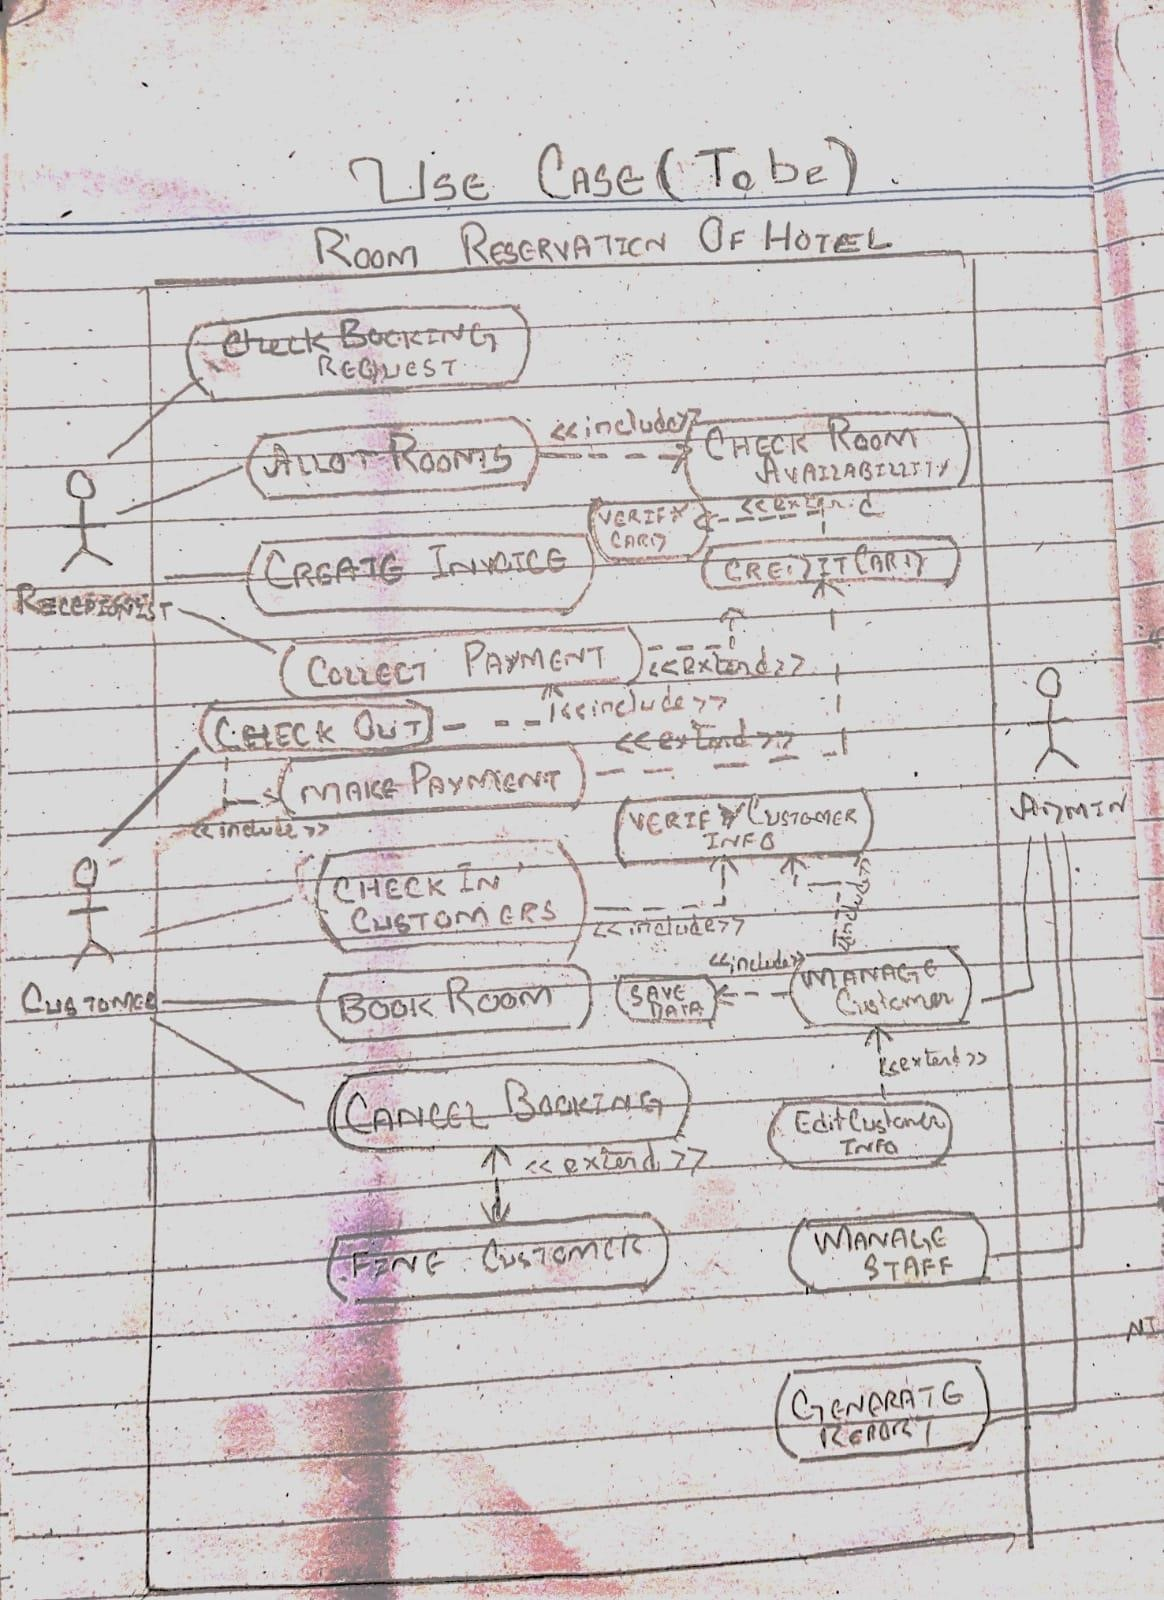 USE CASE (To be)
ROOM RESERVATION OF HOTEL
Check BOOKING
REQUEST
ALLOT ROOMS
<<include>>
CHECK ROOM
AVAILABILLITY
<<extend
VERIFY
CARD
CREDIT CARD
CREATE INVOICE
COLLECT PAYMENT
<<extend>>
<<include>>
CHECK OUT
<<extend>>
MAKE PAYMENT
<<include>>
ADMIN
VERIFY CUSTOMER
INFO
CHECK IN
CUSTOMERS
<<include>>
<<include>>
CUSTOMER
BOOK ROOM
SAVE
DATA
<<include>>
MANAGE
Customer
<<extend>>
CANCEL BOOKING
Edit Customer
INFO
<<extend>>
FINE CUSTOMER
MANAGE
STAFF
GENERATE
REPORT